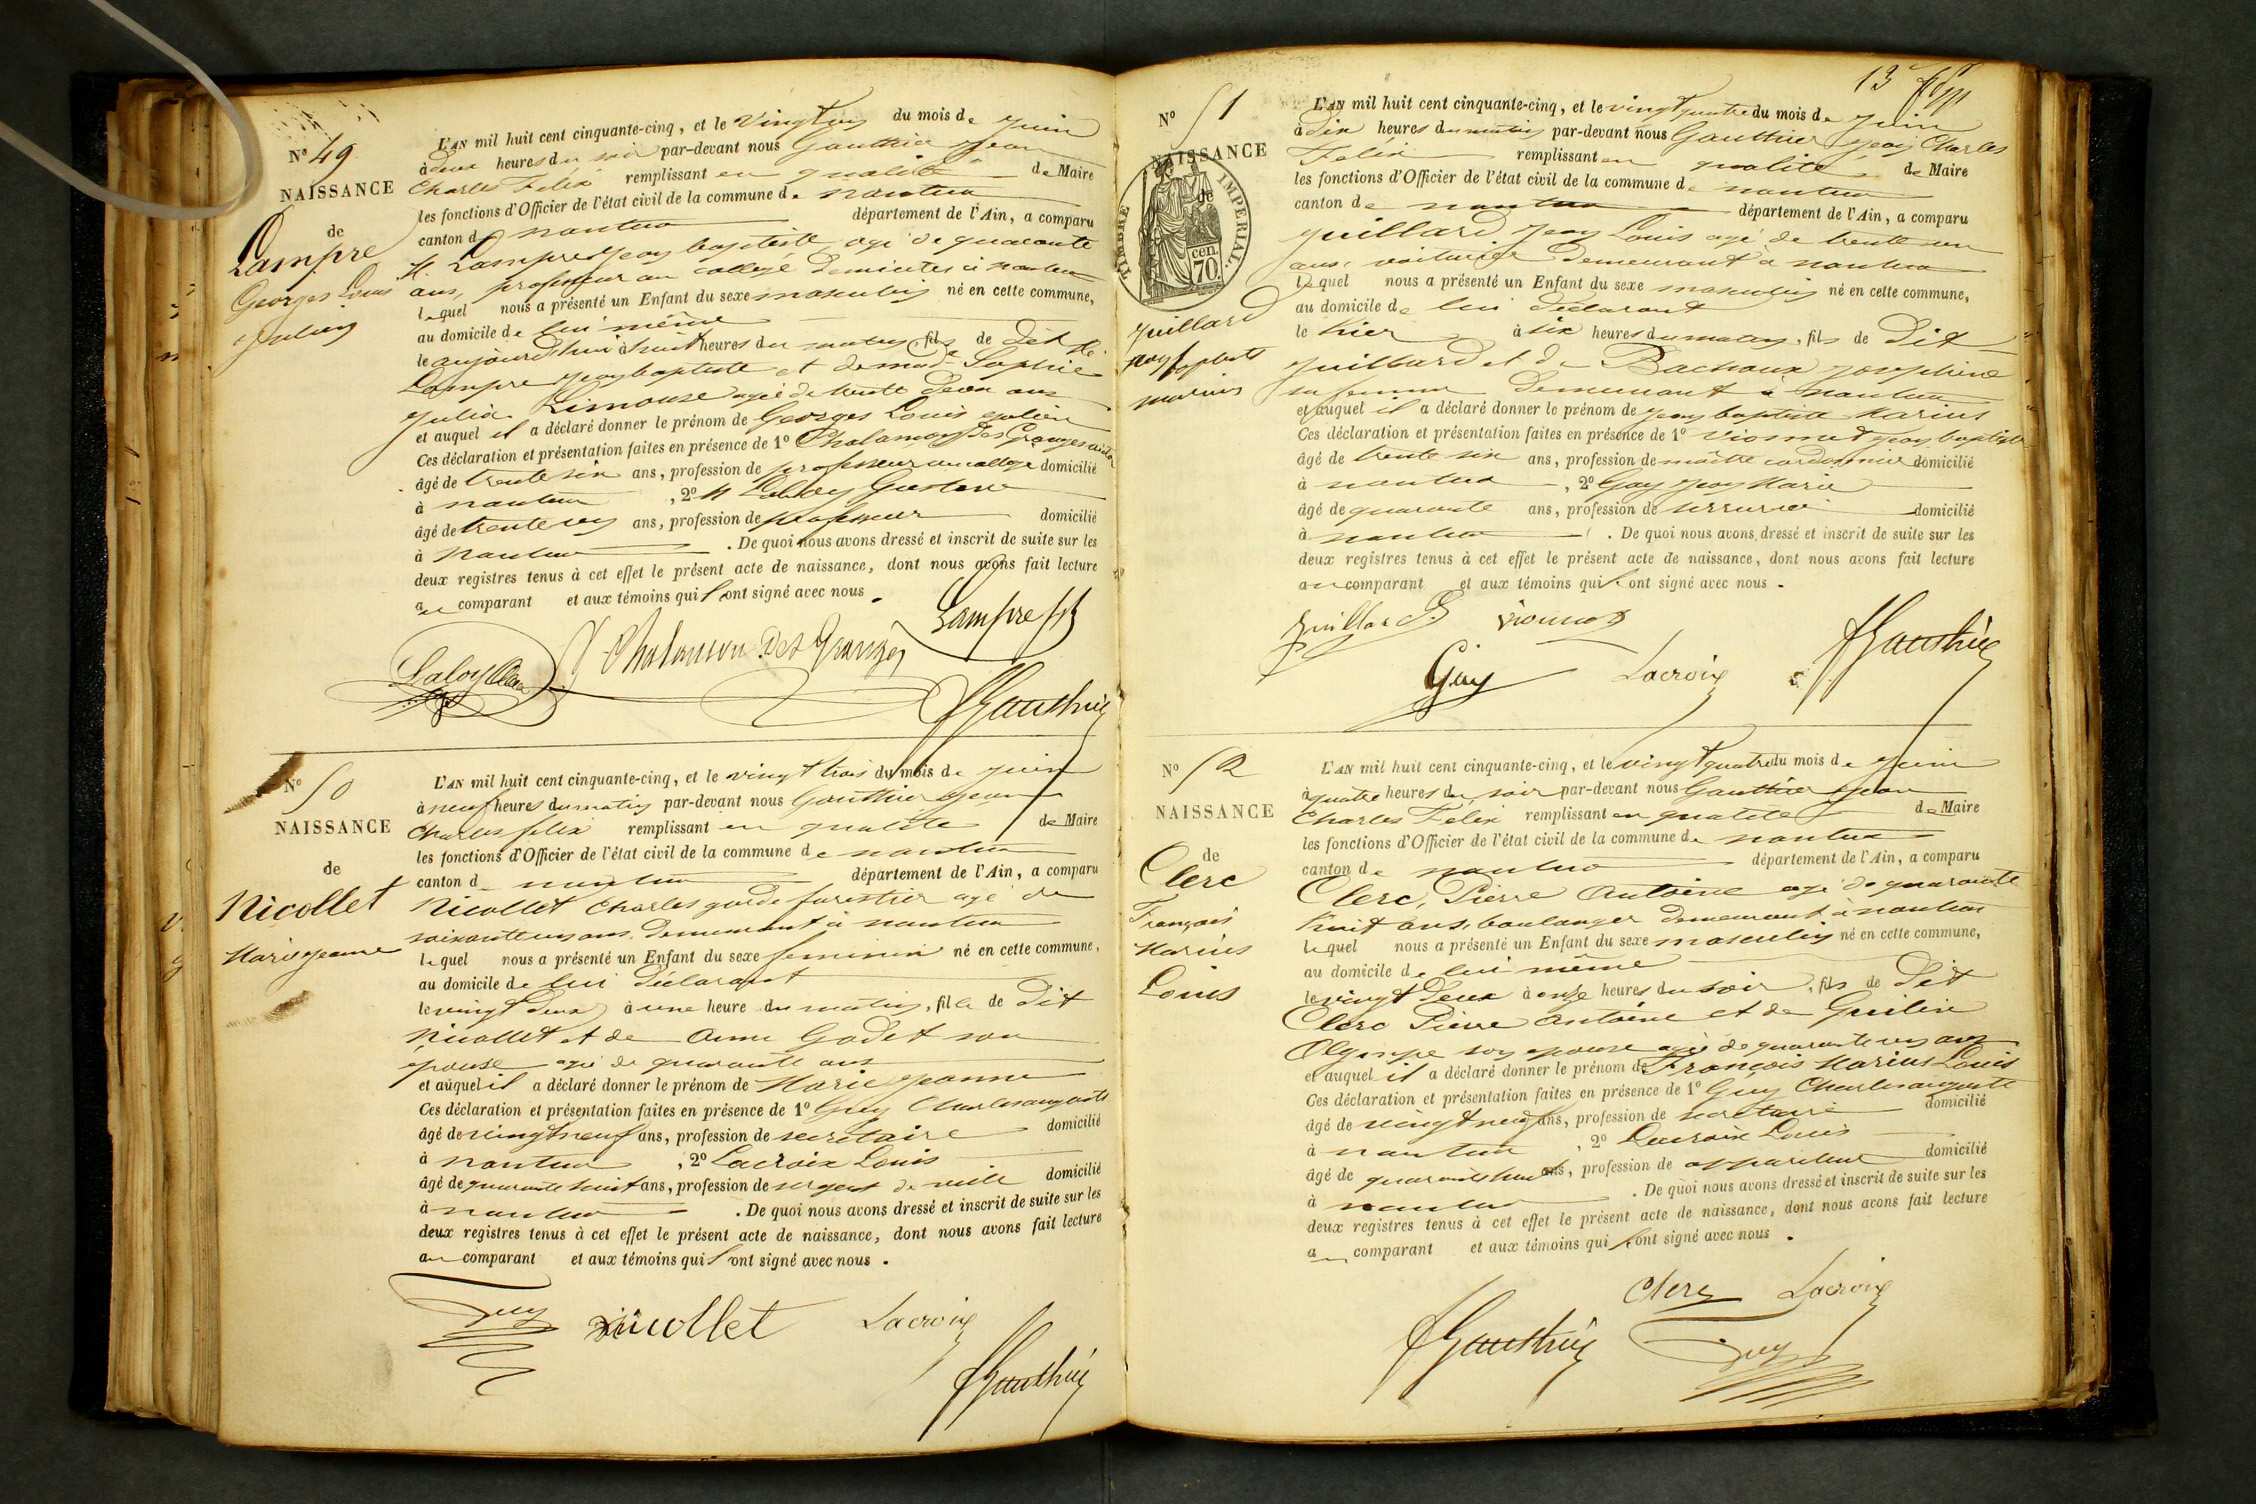 N° 49
NAISSANCE
de
Lampre
Georges Louis
Julien
L'AN mil huit cent cinquante-cinq, et le vingt un du mois de juin
à deux heures du soir par-devant nous Gauthier Jean
Charles Felix remplissant en qualité de Maire
les fonctions d'Officier de l'état civil de la commune de nantua
canton de nantua département de l'Ain, a comparu
M. Lampre Jean baptiste, agé de quarante
ans, professeur au collège domicilié à nantua
lequel nous a présenté un Enfant du sexe masculin né en cette commune,
au domicile de lui même
le aujourd'hui à huit heures du matin, fils de dit Mr
Lampre Jean baptiste et de mad. Sophie
Julia Limouse agée de trente deux ans
et auquel il a déclaré donner le prénom de Georges Louis Julien
Ces déclaration et présentation faites en présence de 1° Chalamon Des Granges
âgé de trente six ans, profession de professeur au collège domicilié
à nantua, 2° M Laloy Gustave
âgé de trente un ans, profession de professeur domicilié
à Nantua. De quoi nous avons dressé et inscrit de suite sur les
deux registres tenus à cet effet le présent acte de naissance, dont nous avons fait lecture
au comparant et aux témoins qui ont signé avec nous.
Lampre
Laloy Chalamon Des Granges
Gauthier
N° 50
NAISSANCE
de
Nicollet
Marie Jeanne
L'AN mil huit cent cinquante-cinq, et le vingt trois du mois de juin
à neuf heures du matin par-devant nous Gauthier Jean
Charles felix remplissant en qualité de Maire
les fonctions d'Officier de l'état civil de la commune de nantua
canton de nantua département de l'Ain, a comparu
Nicollet Charles garde forestier agé de
soixante un ans demeurant à nantua
lequel nous a présenté un Enfant du sexe feminin né en cette commune,
au domicile de lui déclarant
le vingt deux à une heure du matin, fille de dit
Nicollet et de Anne Godet son
épouse agée de quarante ans
et auquel il a déclaré donner le prénom de Marie Jeanne
Ces déclaration et présentation faites en présence de 1° Guy Charles auguste
âgé de vingt neuf ans, profession de secrétaire domicilié
à nantua, 2° Lacroix Louis
âgé de quarante huit ans, profession de sergent de ville domicilié
à nantua. De quoi nous avons dressé et inscrit de suite sur les
deux registres tenus à cet effet le présent acte de naissance, dont nous avons fait lecture
au comparant et aux témoins qui ont signé avec nous.
Guy Nicollet Lacroix
Gauthier
13
N° 51
NAISSANCE
de
TIMBRE IMPERIAL
70 cen.
Juillard
Jean baptiste
marius
L'AN mil huit cent cinquante-cinq, et le vingt quatre du mois de juin
à dix heures du matin par-devant nous Gauthier Jean Charles
Felix remplissant en qualité de Maire
les fonctions d'Officier de l'état civil de la commune de nantua
canton de nantua département de l'Ain, a comparu
Juillard Jean Louis agé de trente un
ans, voiturier demeurant à nantua
lequel nous a présenté un Enfant du sexe masculin né en cette commune,
au domicile de lui déclarant
le hier à six heures du matin, fils de Dit
Juillard et de Bachoux Josephine
sa femme demeurant à nantua
et auquel il a déclaré donner le prénom de Jean baptiste Marius
Ces déclaration et présentation faites en présence de 1° Vionnet Jean baptiste
âgé de trente six ans, profession de maître cordonnier domicilié
à nantua, 2° Gay Jean Marie
âgé de quarante ans, profession de serrurier domicilié
à nantua. De quoi nous avons dressé et inscrit de suite sur les
deux registres tenus à cet effet le présent acte de naissance, dont nous avons fait lecture
au comparant et aux témoins qui ont signé avec nous.
Juillard Vionnet
Gay Lacroix Gauthier
N° 52
NAISSANCE
de
Clerc
François
Marius
Louis
L'AN mil huit cent cinquante-cinq, et le vingt quatre du mois de juin
à quatre heures du soir par-devant nous Gauthier Jean
Charles Felix remplissant en qualité de Maire
les fonctions d'Officier de l'état civil de la commune de nantua
canton de nantua département de l'Ain, a comparu
Clerc, Pierre Antoine agé de quarante
huit ans, boulanger demeurant à nantua
lequel nous a présenté un Enfant du sexe masculin né en cette commune,
au domicile de lui même
le vingt deux à onze heures du soir, fils de Dit
Clerc Pierre Antoine et de Guilin
Olympe son épouse agée de quarante un ans
et auquel il a déclaré donner le prénom de François Marius Louis
Ces déclaration et présentation faites en présence de 1° Guy Charles auguste
âgé de vingt neuf ans, profession de secrétaire domicilié
à nantua, 2° Lacroix Louis
âgé de quarante huit ans, profession de appariteur domicilié
à nantua. De quoi nous avons dressé et inscrit de suite sur les
deux registres tenus à cet effet le présent acte de naissance, dont nous avons fait lecture
au comparant et aux témoins qui ont signé avec nous.
Clerc Lacroix
Gauthier Guy